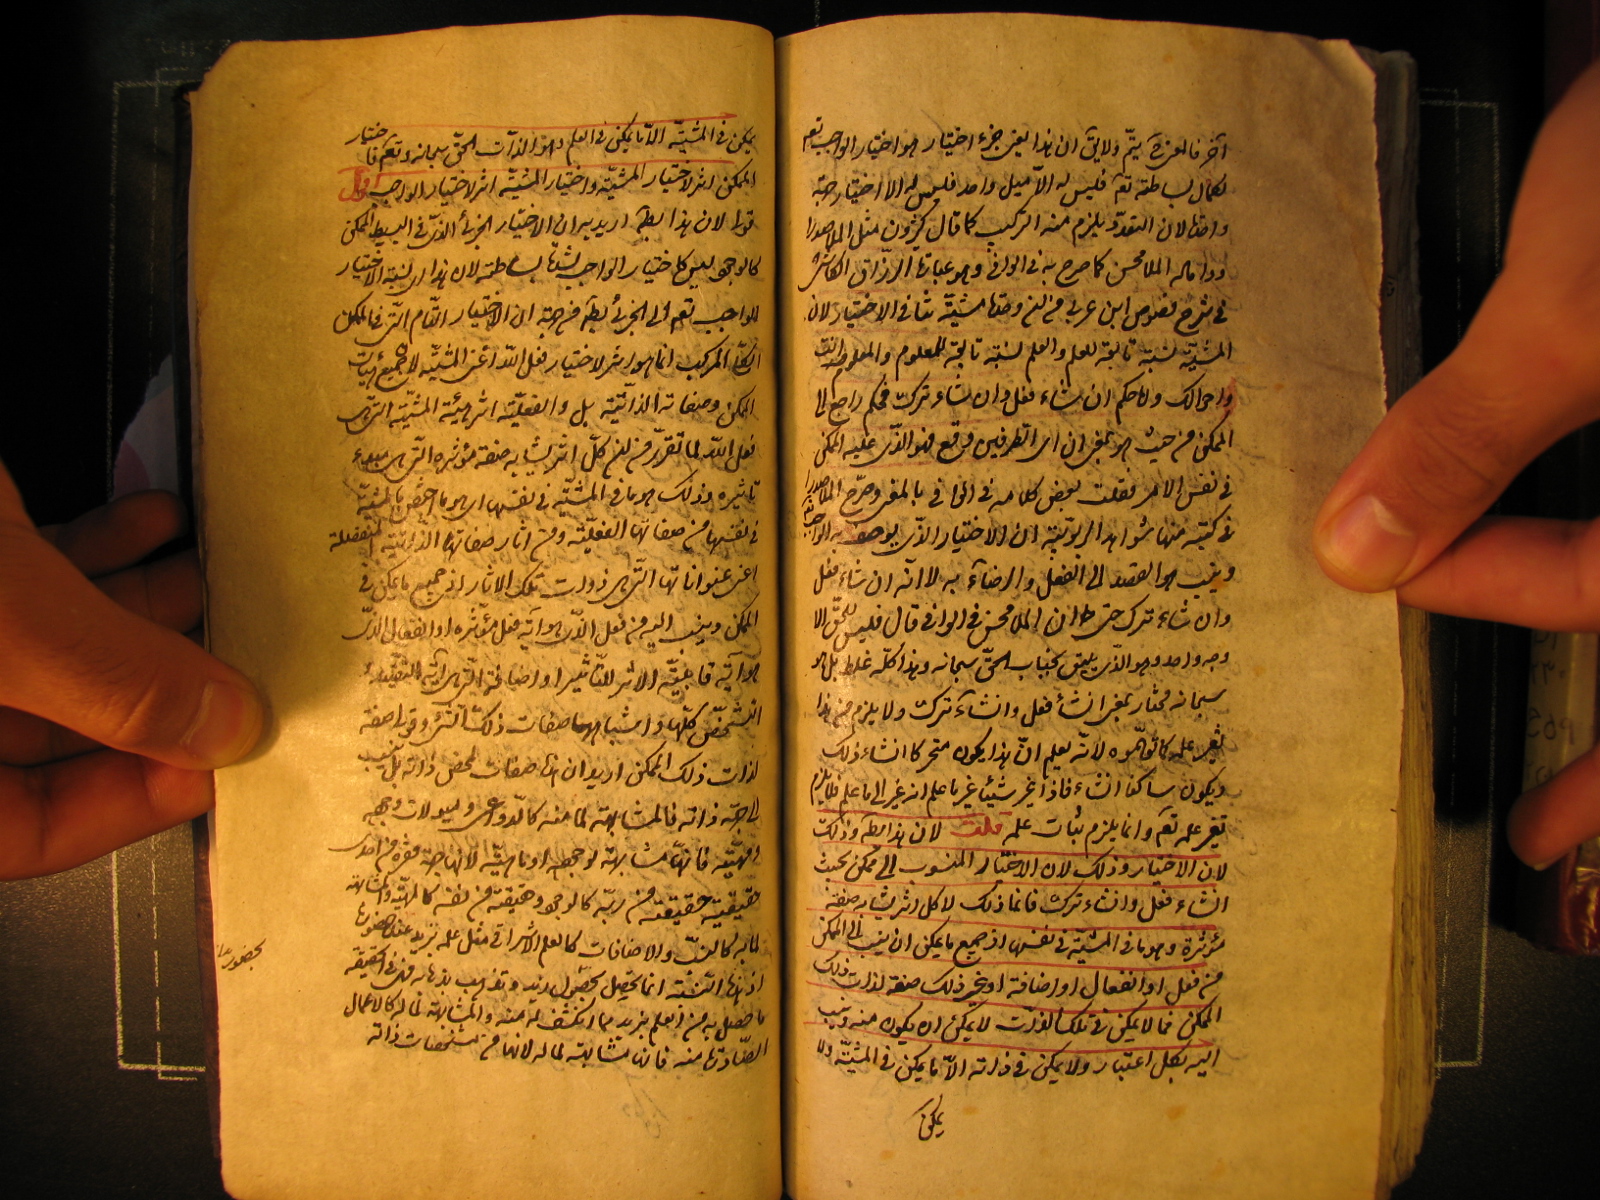 آخر فالعزيز يتم ولايق ان هذا يعني جزء اختيار هو اختيار الواجب تعم
لكمال بساطته تعم فليس له الا ميل واحد فليس له الا اختيار جهة
واحدة لان التعدد يلزم منه التركيب كما قال كثيرون مثل الملا صدرا
وداماده الملا محسن كما صرح به في الوافي وهو عبارة عبد الرزاق الكاشي
في شرح فصوص ابن عربي من ان وحدة مشيته تنافي الاختيار لان
المشية نسبة تابعة للعلم والعلم نسبة تابعة للمعلوم والمعلوم انت
واحوالك واما حكم ان شاء فعل وان شاء ترك فحكم راجع الى
الممكن من حيث هو بمعنى ان اي الطرفين وقع فهو الذي عليه الممكن
في نفس الامر فنقلت بعض كلامه في الوافي بالمعنى وصرح الملا صدرا
في كتبه منها شواهد الربوبية ان الاختيار الذي يوصف به الواجب تعم
وينسب هو القصد الى الفعل والرضاء به لا انه ان شاء فعل
وان شاء ترك حتى ان الملا محسن في الوافي قال فليس للحق الا
وجه واحد وهو الذي يليق بجناب الحق سبحانه وهذا كله غلط بل هو
سبحانه مختار بمعنى انشاء فعل وانشاء ترك ولا يلزم من هذا
تغير علمه كما توهموه لانه يعلم ان هذا يكون متحركا انشاء ذلك
ويكون ساكنا انشاء فاذا غير شيئا غير ما علم انه غير الى ما علم فلا يلزم
تغير علمه تعم وانما يلزم ثبات علمه قلت لان هذا بطه وذلك
لان الاختيار وذلك لان الاختيار المنسوب الى ممكن بحيث
انشاء فعل وانشاء ترك فانما ذلك لان كل اثر يشابه صفة
مؤثره وهو ما في المشية في نفسها اذ جميع ما يمكن ان ينسب الى الممكن
من فعل او انفعال او اضافة او غير ذلك صفة لذات ذلك
الممكن فما لا يمكن في تلك الذات لا يمكن ان يكون منه وينسب
اليه بكل اعتبار ولا يمكن في ذاته الا ما يمكن في المشية ولا
يمكن
يمكن في المشية الا ما يمكن في العلم وهو الذات الحق سبحانه وتعم فاختيار
الممكن اثر لاختيار المشية واختيار المشية اثر لاختيار الواجب اقول
قولنا لان هذا بطه اريد به ان الاختيار الجزئي الذي في البسيط الممكن
كالوجود ليس كاختيار الواجب لشدة بساطته لان هذا اي نسبة الاختيار
الواجب تعم الى الجزئي بطه من جهة ان الاختيار التام الذي في الممكن
المركب انما هو اثر لاختيار فعل الله اعني المشية لان جميع هيئات
الممكن وصفاته الذاتية بل والفعلية اثر هيئة المشية التي هي
فعل الله لما تقرر من ان كل اثر يشابه صفة مؤثره التي هي مبدء
تاثيره وذلك هو ما في المشية في نفسها اي هو ما يختص بالمشية
في نفسها من صفاتها الفعلية ومن اثار صفاتها الذاتية المنفصلة
اعني عنواناتها التي هي ذوات تلك الاثار اذ جميع ما يمكن في
الممكن وينسب اليه من فعل الذي هو اية فعل مؤثره او انفعال الذي
هو اية قابلية الاثر للتاثير او اضافة التي هي اية
التشخص كلها وامثالها صفات ذلك الشئ وقولنا صفة
لذات ذلك الممكن اريد ان هذه صفات لمحض ذاته بل ينسب
الى جهة ذاته فالمشابهة لما منه كالدواعي وميولات وجهه
في مهيته فانها مشابهة لوجهه او ماهيته لانها جهة من احدى
حقيقتيه حقيقته من ربه كالوجود وحقيقته من نفسه كالمهية والمشابهة
لما به كالنسب والاضافات كالعلم الاشراقي مثل علم زيد عند حضورها
اذ هذه النسبة انما تحصل بحصول زيد وتذهب بذهابه فهي في الحقيقة
ما حصل به من العلم بزيد مما انكشف له منه والمشابهة لما له كالاعمال
الصادرة منه فانها مشابهة لما له لانها من مشخصات ذاته